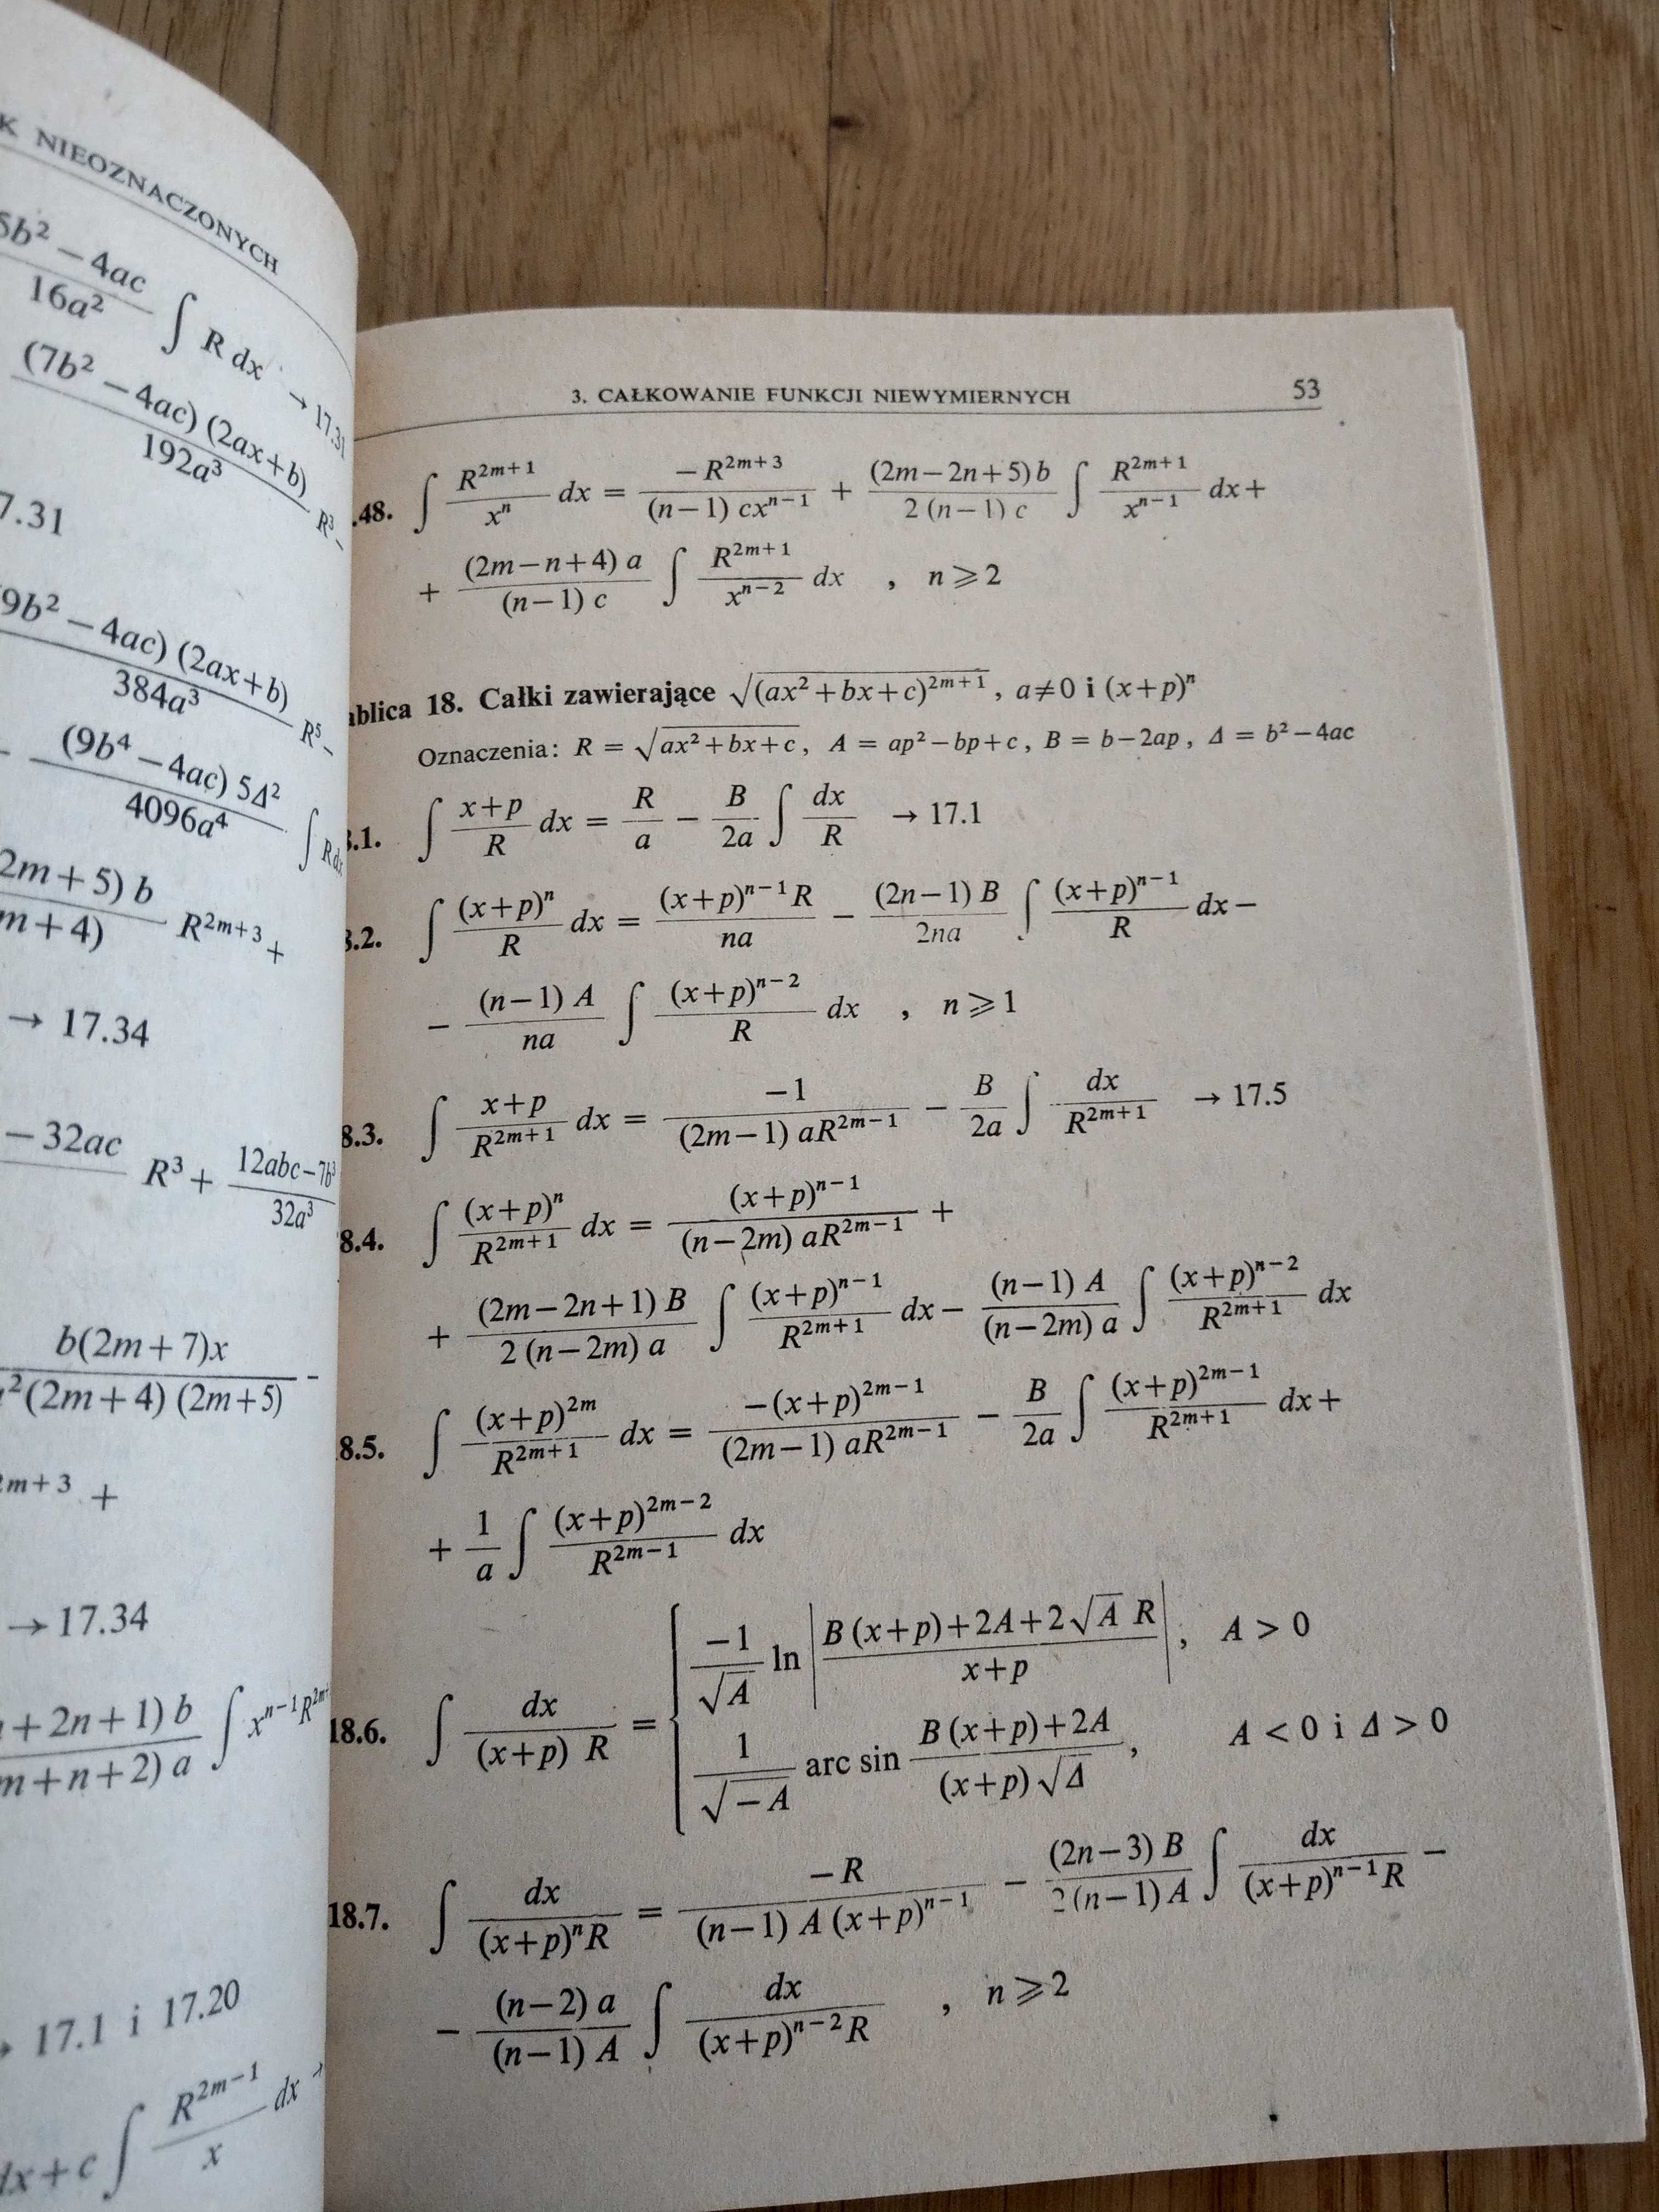 K NIEOZNACZONYCH
5b² − 4ac / 16a² ∫ R dx → 17.31
(7b² − 4ac) (2ax+b) / 192a³ R³ −
7.31
9b² − 4ac) (2ax+b) / 384a³ R⁵ −
− (9b⁴ − 4ac) 5Δ² / 4096a⁴ ∫ Rdx
2m+5) b / m+4) R²ᵐ⁺³ +
→ 17.34
−32ac R³ + 12abc−7b³ / 32a³
b(2m+7)x / ²(2m+4) (2m+5) −
m+3 +
→ 17.34
+2n+1) b / m+n+2) a ∫ xⁿ⁻¹R²ᵐ
17.1 i 17.20
dx+c ∫ R²ᵐ⁻¹ / x dx
3. CAŁKOWANIE FUNKCJI NIEWYMIERNYCH 53
.48. ∫ R²ᵐ⁺¹ / xⁿ dx = −R²ᵐ⁺³ / (n−1) cxⁿ⁻¹ + (2m−2n+5) b / 2 (n−1) c ∫ R²ᵐ⁺¹ / xⁿ⁻¹ dx+
+ (2m−n+4) a / (n−1) c ∫ R²ᵐ⁺¹ / xⁿ⁻² dx , n⩾2
ablica 18. Całki zawierające √(ax²+bx+c)²ᵐ⁺¹, a≠0 i (x+p)ⁿ
Oznaczenia: R = √ax²+bx+c, A = ap²−bp+c, B = b−2ap, Δ = b²−4ac
8.1. ∫ x+p / R dx = R / a − B / 2a ∫ dx / R → 17.1
8.2. ∫ (x+p)ⁿ / R dx = (x+p)ⁿ⁻¹R / na − (2n−1) B / 2na ∫ (x+p)ⁿ⁻¹ / R dx−
− (n−1) A / na ∫ (x+p)ⁿ⁻² / R dx , n⩾1
8.3. ∫ x+p / R²ᵐ⁺¹ dx = −1 / (2m−1) aR²ᵐ⁻¹ − B / 2a ∫ dx / R²ᵐ⁺¹ → 17.5
8.4. ∫ (x+p)ⁿ / R²ᵐ⁺¹ dx = (x+p)ⁿ⁻¹ / (n−2m) aR²ᵐ⁻¹ +
+ (2m−2n+1) B / 2 (n−2m) a ∫ (x+p)ⁿ⁻¹ / R²ᵐ⁺¹ dx− (n−1) A / (n−2m) a ∫ (x+p)ⁿ⁻² / R²ᵐ⁺¹ dx
8.5. ∫ (x+p)²ᵐ / R²ᵐ⁺¹ dx = −(x+p)²ᵐ⁻¹ / (2m−1) aR²ᵐ⁻¹ − B / 2a ∫ (x+p)²ᵐ⁻¹ / R²ᵐ⁺¹ dx+
+ 1 / a ∫ (x+p)²ᵐ⁻² / R²ᵐ⁻¹ dx
18.6. ∫ dx / (x+p) R = { −1 / √A ln |B (x+p)+2A+2√A R / x+p|, A > 0
1 / √−A arc sin B (x+p)+2A / (x+p) √Δ, A < 0 i Δ > 0
18.7. ∫ dx / (x+p)ⁿR = −R / (n−1) A (x+p)ⁿ⁻¹ − (2n−3) B / 2 (n−1) A ∫ dx / (x+p)ⁿ⁻¹R −
− (n−2) a / (n−1) A ∫ dx / (x+p)ⁿ⁻²R , n⩾2